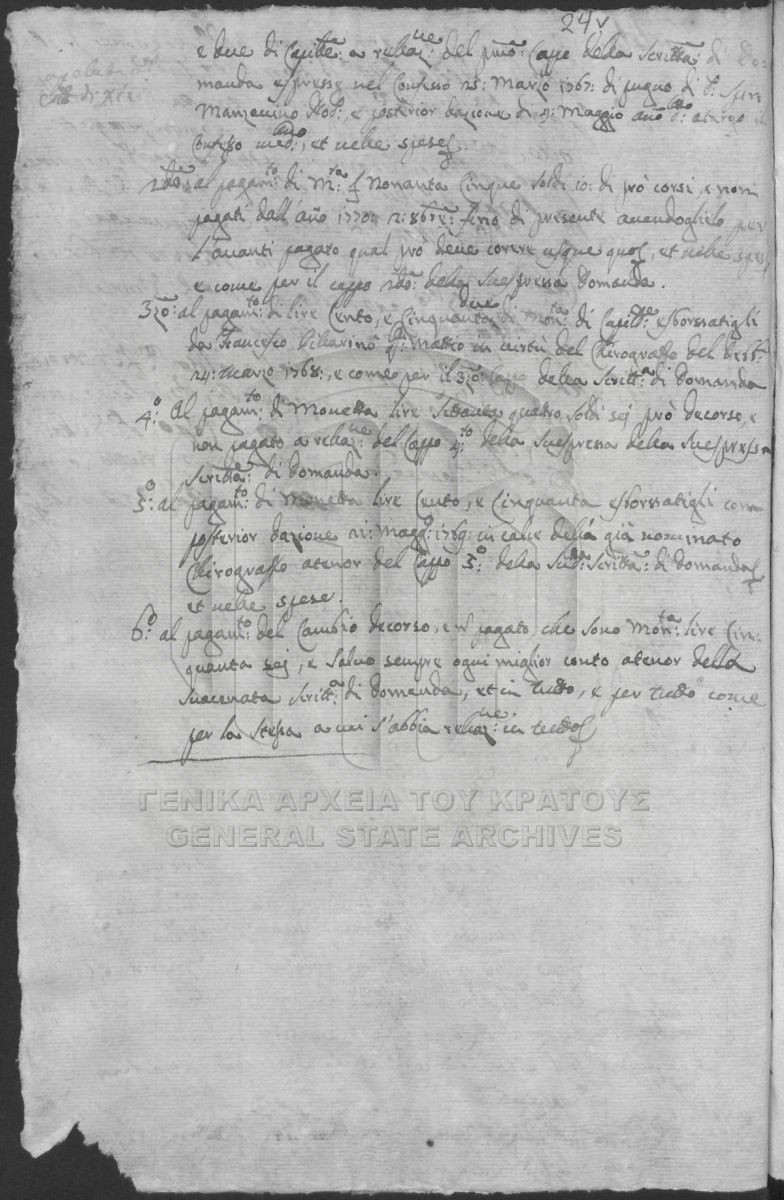 24v
e due di Capitle: a relaz:ne del pmo: Cappo della Scritta: di Do-
manda espresse nel Confesso 25: Marzo 1767: di pugno di S:
Manzanino e posterior dazione di 9: Maggio año atergo
Confesso med:mo, et nelle spese
2do: al pagam:to di M:ta £ Nonanta Cinque soldi 10: di prò corsi, e non
pagati dall'año 1770: fino di presente avendoglielo per
l'avanti pagato qual prò deve corere usque quo, et nelle spese
e come per il cappo 2do: della suespressa Domanda.
3zo: al pagam:to di lire Cento, e Cinquanta due di Mon:ta di Capitle: esborsatigli
da Francesco Vibarino q: Mattio in virtù del Chirograffo del
24: Marzo 1768:, e come per il 3zo: Cappo della Scritt:a di Domanda
4:o Al pagam:to di Monetta lire Settanta quatro soldi sej prò decorso, e
non pagato a relaz:ne del Cappo 4:to della suespressa della suespressa
Scritta: di Domanda.
5:o al pagam:to di Monetta lire Cento, e Cinquanta esborsatigli con
posterior dazione 21: Magg:o 1769: in calce della già nominato
Chirograffo atenor del Cappo 5:o della Sud:ta Scritta: di Domanda
et nelle spese.
6:o al pagam:to del Cambio decorso, e ñ pagato che sono Mon:ta lire Cin-
quanta sej, e salvo sempre ogni miglior conto atenor della
suacenata Scritt:a di Domanda, et in tutto, e per tutto come
per la stessa a cui s'abbia relaz:ne in tutto
ΓΕΝΙΚΑ ΑΡΧΕΙΑ ΤΟΥ ΚΡΑΤΟΥΣ
GENERAL STATE ARCHIVES